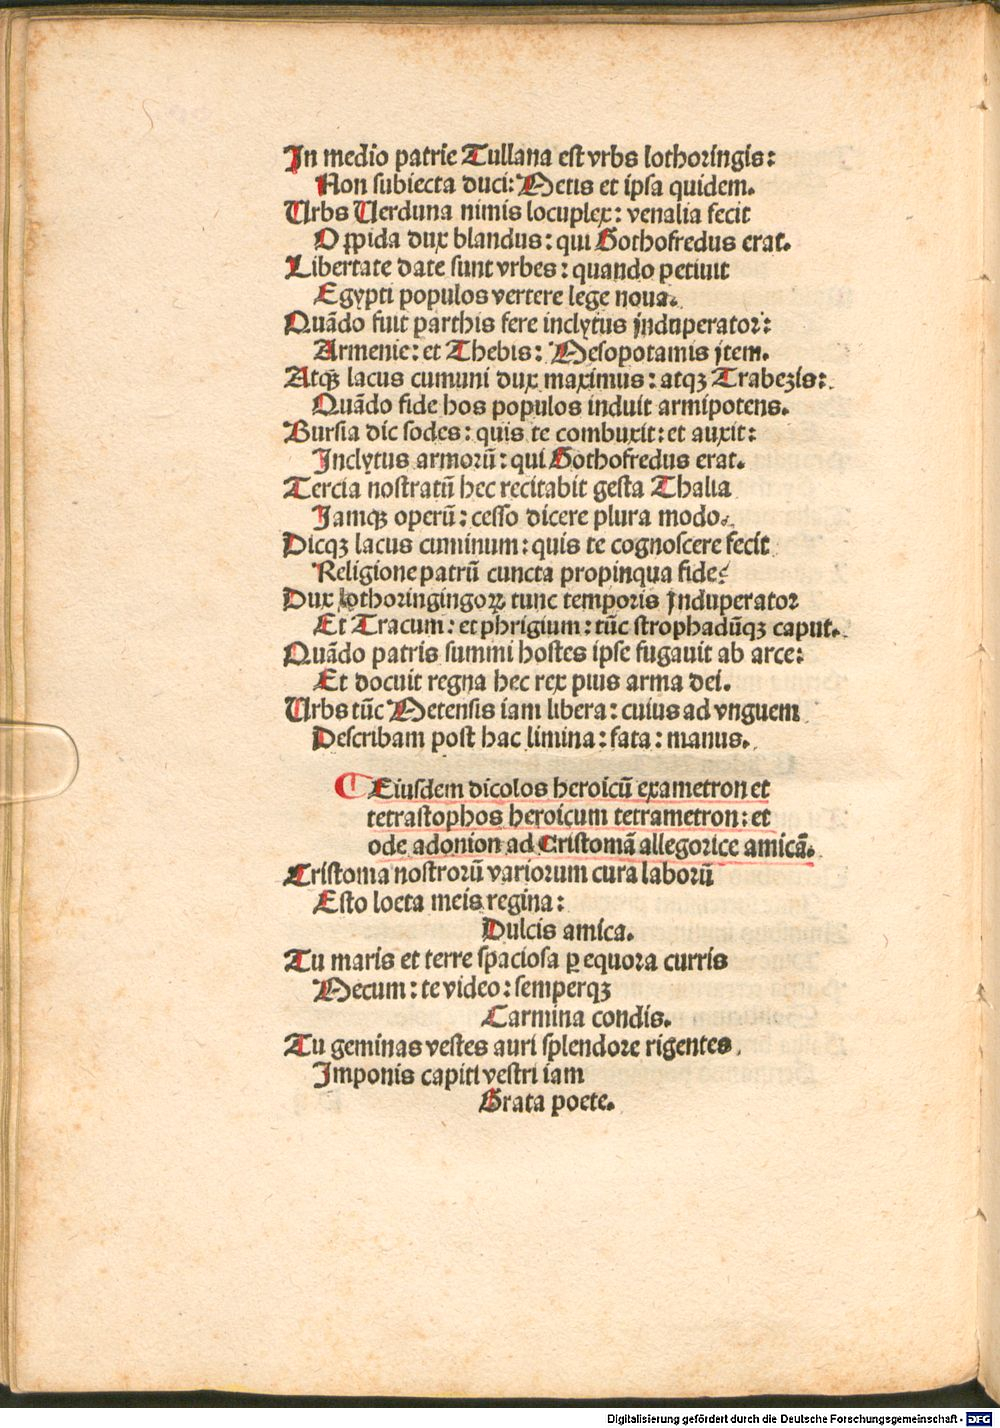 In medio patrie Tullana est vrbs lothoringis:
Non subiecta duci: Metis et ipsa quidem.
Urbs Uerduna nimis locuplex: venalia fecit
Oppida dux blandus: qui Gothofredus erat.
Libertate date sunt vrbes: quando petiuit
Egypti populos vertere lege noua.
Quãdo fuit parthis fere inclytus induperator:
Armenie: et Thebis: Mesopotamis item.
Atqꝫ lacus cumuni dux maximus: atqꝫ Trabezis:
Quãdo fide hos populos induit armipotens.
Bursia dic sodes: quis te combuxit: et auxit:
Inclytus armorũ: qui Gothofredus erat.
Tercia nostratũ hec recitabit gesta Thalia
Jamqꝫ operũ: cesso dicere plura modo.
Dicqꝫ lacus cuminum: quis te cognoscere fecit
Religione patrũ cuncta propinqua fide:
Dux lothoringingoꝝ tunc temporis induperator
Et Tracum: et phrigium: tũc strophadũqꝫ caput.
Quãdo patris summi hostes ipse fugauit ab arce:
Et docuit regna hec rex pius arma dei.
Urbs tũc Metensis iam libera: cuius ad vnguem
Describam post hac limina: fata: manus.
¶ Eiusdem dicolos heroicũ exametron et
tetrastophos heroicum tetrametron: et
ode adonion ad Cristomã allegorice amicã.
Cristoma nostrorũ variorum cura laborũ
Esto loeta meis regina:
Dulcis amica.
Tu maris et terre spaciosa ꝑ equora curris
Mecum: te video: semperqꝫ
Carmina condis.
Tu geminas vestes auri splendore rigentes.
Imponis capiti vestri iam
Grata poete.
Digitalisierung gefördert durch die Deutsche Forschungsgemeinschaft - DFG